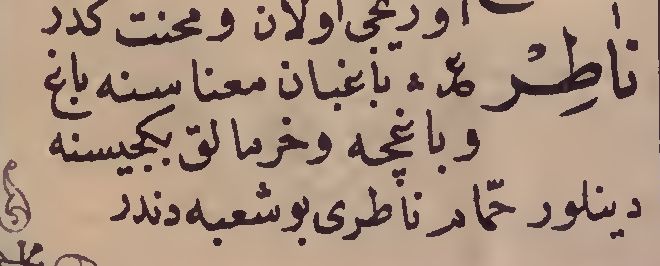 اوزغجی اولان و محنت کدر
ناطِرْ عر باغبان معناسنه باغ
و باغچه و خرمالق بکجیسنه
دینلور حمّام ناطری بو شعبه دندر